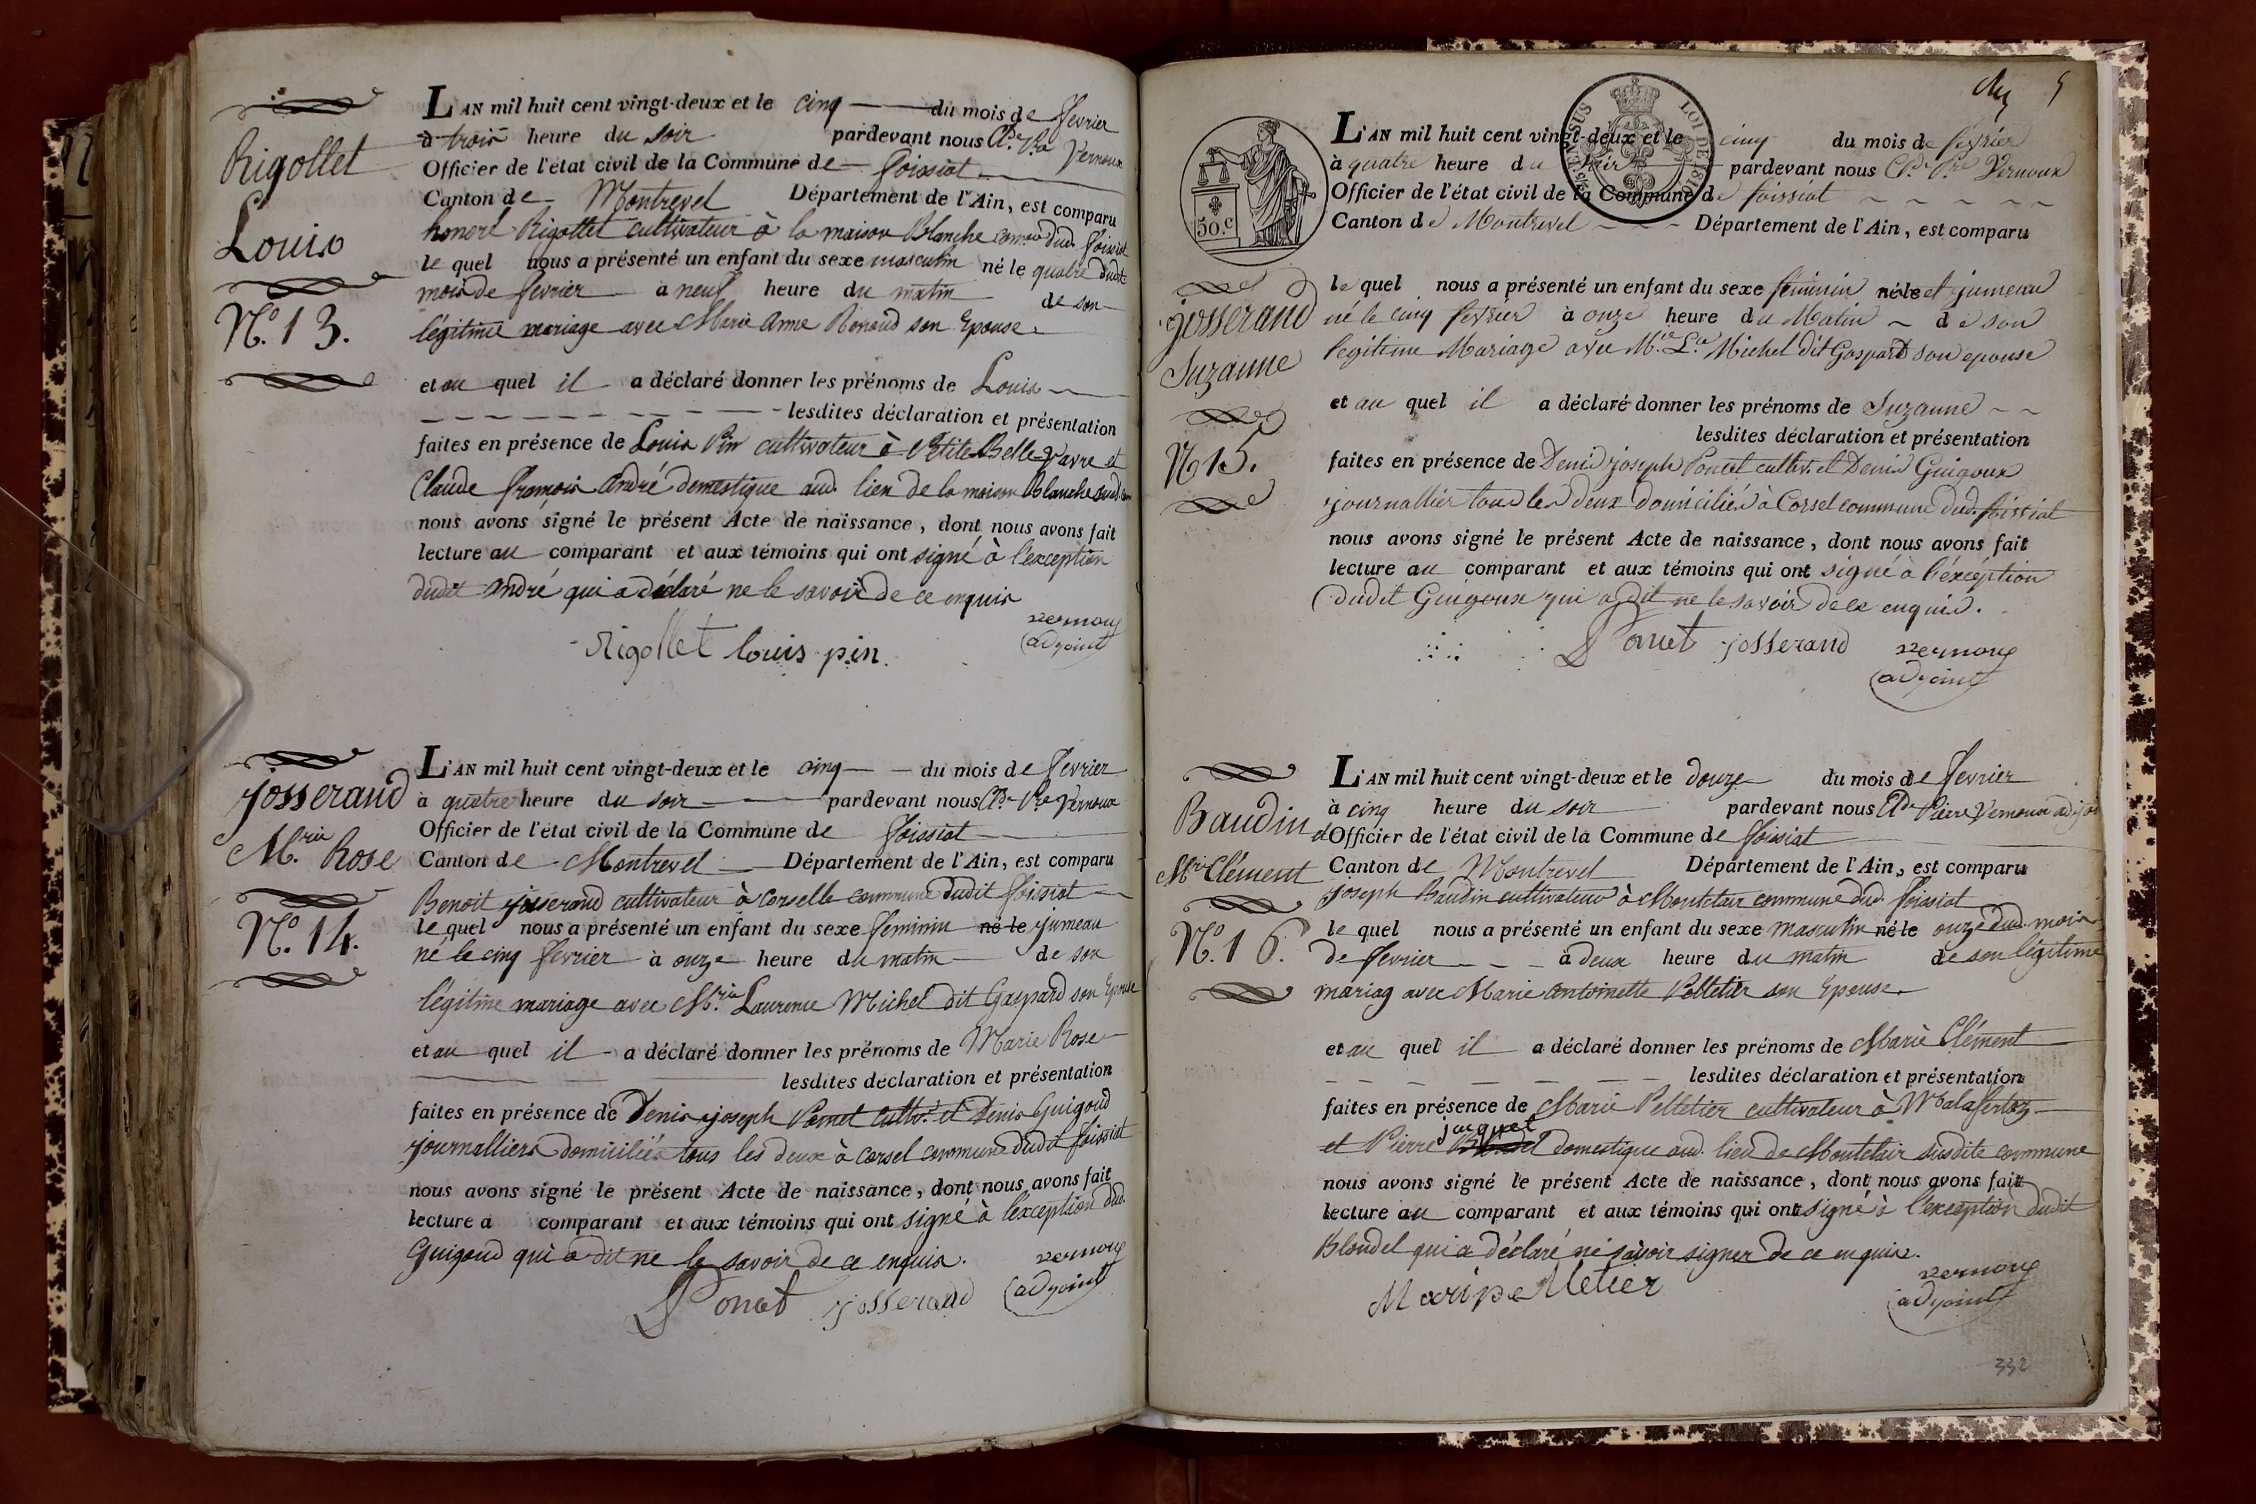 Rigollet
Louis
N.º 13.
L'AN mil huit cent vingt-deux et le cinq du mois de fevrier
à trois heure du soir pardevant nous Cl.de P.re Vernoux
Officier de l'état civil de la Commune de foissiat
Canton de Montrevel Département de l'Ain, est comparu
honoré Rigollet cultivateur à la maison Blanche comm. dud. foissiat
le quel nous a présenté un enfant du sexe masculin né le quatre dudit
mois de fevrier à neuf heure du matin de son
légitime mariage avec Marie Anne Renaud son Epouse.
et au quel il a déclaré donner les prénoms de Louis
lesdites déclaration et présentation
faites en présence de Louis Pin cultivateur à Petite Belle vavre et
Claude françois André domestique aud. lieu de la maison Blanche
nous avons signé le présent Acte de naissance, dont nous avons fait
lecture au comparant et aux témoins qui ont signé à l'exception
dudit André qui a déclaré ne le savoir de ce enquis
Rigollet louis pin.
vernoux
adjoint
josserand
M.rie Rose
N.º 14.
L'AN mil huit cent vingt-deux et le cinq du mois de fevrier
à quatre heure du soir pardevant nous Cl.de P.re Vernoux
Officier de l'état civil de la Commune de foissiat
Canton de Montrevel Département de l'Ain, est comparu
Benoit josserand cultivateur à Corselle commune dudit foissiat
le quel nous a présenté un enfant du sexe feminin né le jumeau
né le cinq fevrier à onze heure du matin de son
légitime mariage avec M.rie Laurence Michel dit Gaspard son Epouse
et au quel il a déclaré donner les prénoms de Marie Rose
lesdites déclaration et présentation
faites en présence de Denis joseph Poncet cultiv.r et Denis Guigoud
journalliers domiciliés tous les deux à Corsel commune dudit foissiat
nous avons signé le présent Acte de naissance, dont nous avons fait
lecture a comparant et aux témoins qui ont signé à l'exception dud.
Guigoud qui a dit ne le savoir de ce enquis.
D Poncet josserand
vernoux
adjoint
5
30.c
LOI DE 1816
josserand
Suzanne
N.º 15.
L'AN mil huit cent vingt-deux et le cinq du mois de février
à quatre heure du soir pardevant nous Cl.de P.re Vernoux
Officier de l'état civil de la Commune de foissiat
Canton de Montrevel Département de l'Ain, est comparu
le quel nous a présenté un enfant du sexe féminin né le et jumeau
né le cinq février à onze heure du Matin de son
legitime Mariage avec M.ie L.ce Michel dit Gaspard son epouse
et au quel il a déclaré donner les prénoms de Suzanne
lesdites déclaration et présentation
faites en présence de Denis joseph Poncet cultiv. et Denis Guigoux
journallier tous les deux domiciliés à Corsel commune dud. foissiat
nous avons signé le présent Acte de naissance, dont nous avons fait
lecture au comparant et aux témoins qui ont signé à l'éxéption
dudit Guigoux qui a dit ne le savoir de ce enquis.
D Poncet josserand
vernoux
adjoint
Baudin
M.ie Clément
N.º 16.
L'AN mil huit cent vingt-deux et le douze du mois de fevrier
à cinq heure du soir pardevant nous Cl.de Pierre Vernoux adjoi
Officier de l'état civil de la Commune de foissiat
Canton de Montrevel Département de l'Ain, est comparu
Joseph Baudin cultivateur à Montclair commune dud. foissiat
le quel nous a présenté un enfant du sexe masculin né le onze dud. mois
de fevrier à deux heure du matin de son légitime
mariag avec Marie Antoinette Pelletier son Epouse.
et au quel il a déclaré donner les prénoms de Marie Clément
lesdites déclaration et présentation
faites en présence de Marie Pelletier cultivateur à Malafertaz
jacquet
et Pierre domestique aud. lieu de Montclair susdite commune
nous avons signé le présent Acte de naissance, dont nous avons fait
lecture au comparant et aux témoins qui ont signé à l'exception dudit
Blondel qui a déclaré ne savoir signer de ce enquis.
Mari pelletier
vernoux
adjoint
332